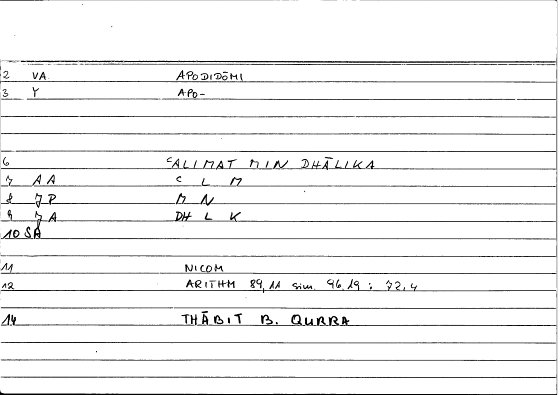 2 VA APODIDŌMI
3 Y APO-
6 ʿALIMAT MIN DHĀLIKA
7 AA ʿ L M
8 JP M N
9 JA DH L K
10 SA
11 NICOM
12 ARITHM 89,11 sim. 96,19 ; 72,4
14 THĀBIT B. QURRA